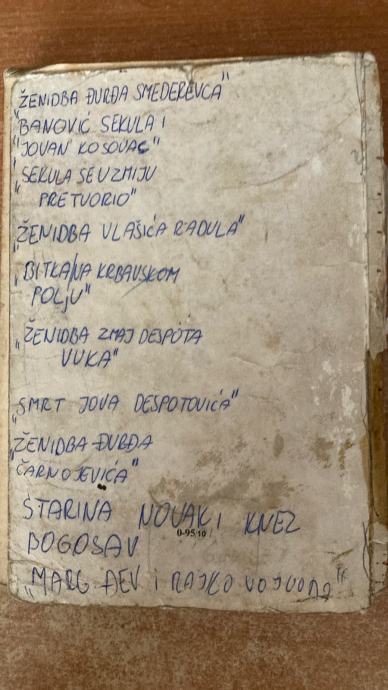 "ŽENIDBA ĐURĐA SMEDEREVCA"
"BANOVIĆ SEKULA I
"JOVAN KOSOVAC"
"SEKULA SE U ZMIJU
PRETVORIO"
"ŽENIDBA VLAŠIĆA RADULA"
"BITKA NA KRBAVSKOM
POLJU"
"ŽENIDBA ZMAJ DESPOTA
VUKA"
"SMRT JOVA DESPOTOVIĆA"
"ŽENIDBA ĐURĐA
ČARNOJEVIĆA"
STARINA NOVAK I KNEZ
BOGOSAV
0-95 10
"MARG ĐEV i RAJKO VOJVODA"